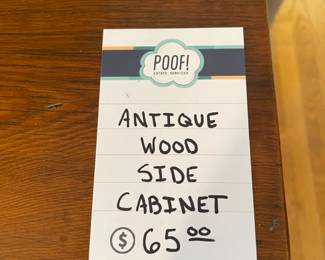 POOF!
ESTATE SERVICES
ANTIQUE
WOOD
SIDE
CABINET
$ 65 00